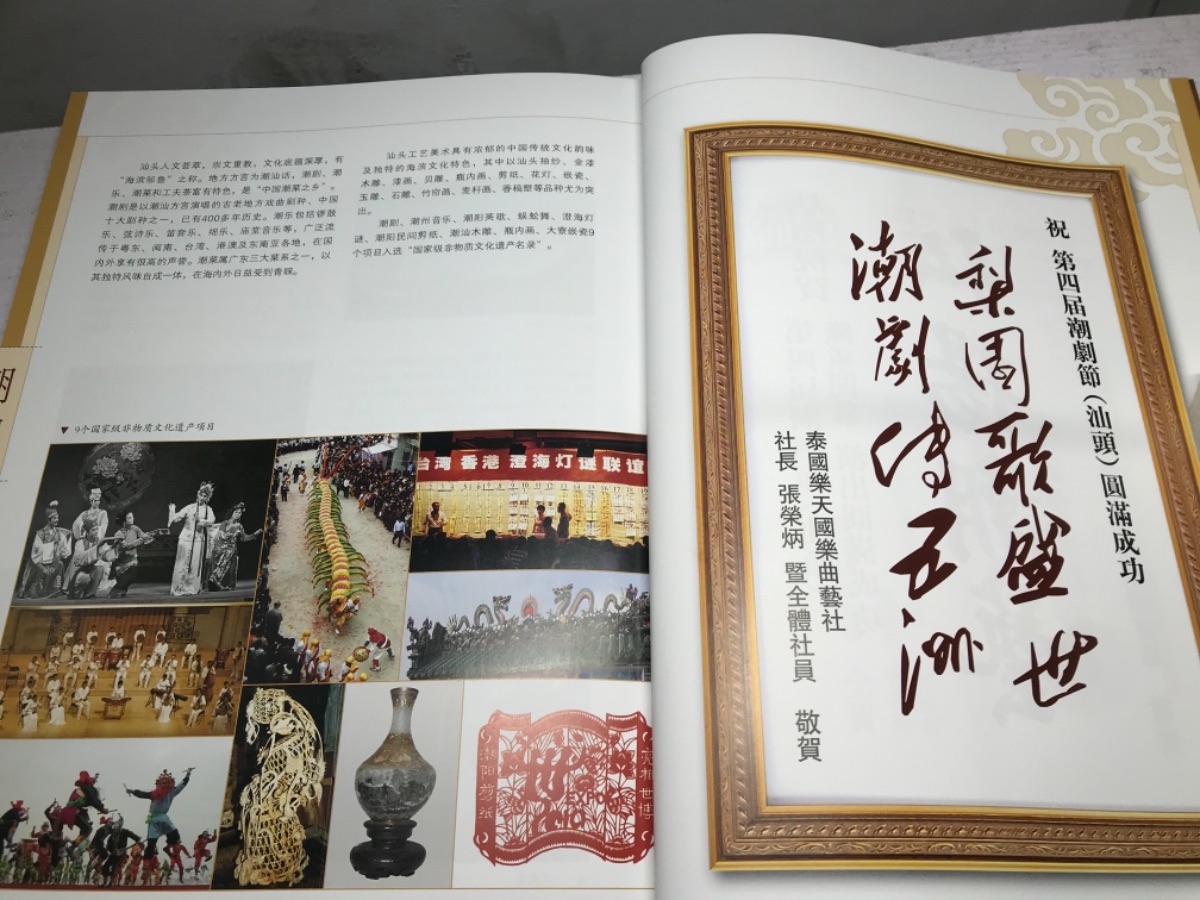 汕头人文荟萃，崇文重教，文化底蕴深厚，有
“海滨邹鲁”之称。地方方言为潮汕话，潮剧、潮
乐、潮菜和工夫茶富有特色，是“中国潮菜之乡”。
潮剧是以潮汕方言演唱的古老地方戏曲剧种、中国
十大剧种之一，已有400多年历史。潮乐包括锣鼓
乐、弦诗乐、笛套乐、细乐、庙堂音乐等，广泛流
传于粤东、闽南、台湾、港澳及东南亚各地，在国
内外享有很高的声誉。潮菜属广东三大菜系之一，以
其独特风味自成一体，在海内外日益受到青睐。
汕头工艺美术具有浓郁的中国传统文化韵味
及独特的海滨文化特色，其中以汕头抽纱、金漆
木雕、漆画、贝雕、瓶内画、剪纸、花灯、嵌瓷、
玉雕、石雕、竹帘画、麦秆画、香稿塑等品种尤为突
出。
潮剧、潮州音乐、潮阳英歌、蜈蚣舞、澄海灯
谜、潮阳民间剪纸、潮汕木雕、瓶内画、大寮嵌瓷9
个项目入选“国家级非物质文化遗产名录”。
▼ 9个国家级非物质文化遗产项目
台湾香港澄海灯谜联谊
潮阳剪纸
祝 第四届潮劇節(汕頭)圓滿成功
梨園歌盛世
潮劇传五洲
泰國樂天國樂曲藝社
社長 張榮炳 暨全體社員 敬賀